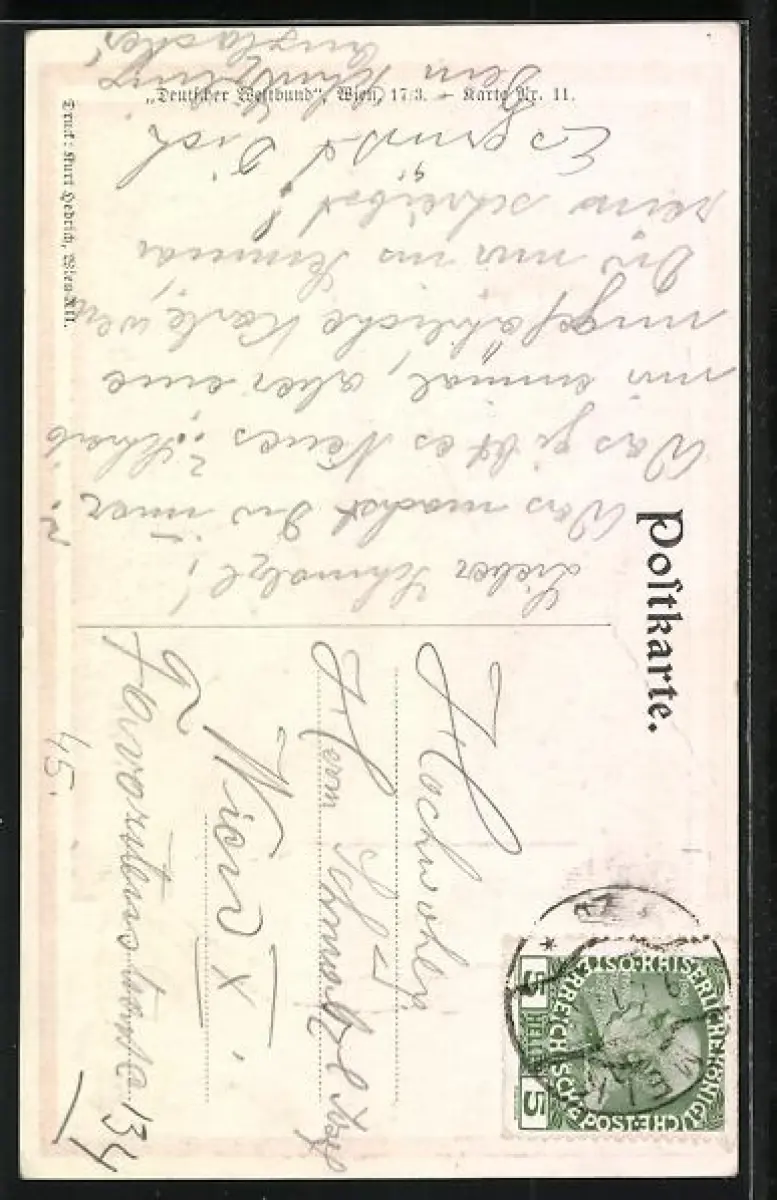 „Deutscher Weltbund“, Wien, 17/3. – Karte Nr. 11.
Druck: Kurt Hedrich, Wien XII.
Postkarte.
Lieber Schmalzl!
Was machst Du immer?
Was gibt es Neues? Schreib
mir einmal, aber eine
ungefährliche Karte, wen
Du mir ins
schreibst!
Es grüsst Dich
Dein
Hochwohlg.
Herrn Schmalzl
Wien X.
Favoritenstrasse 134
45.
KAISERLICHE KÖNIGLICHE ÖSTERREICHISCHE POST
5 HELLER 5